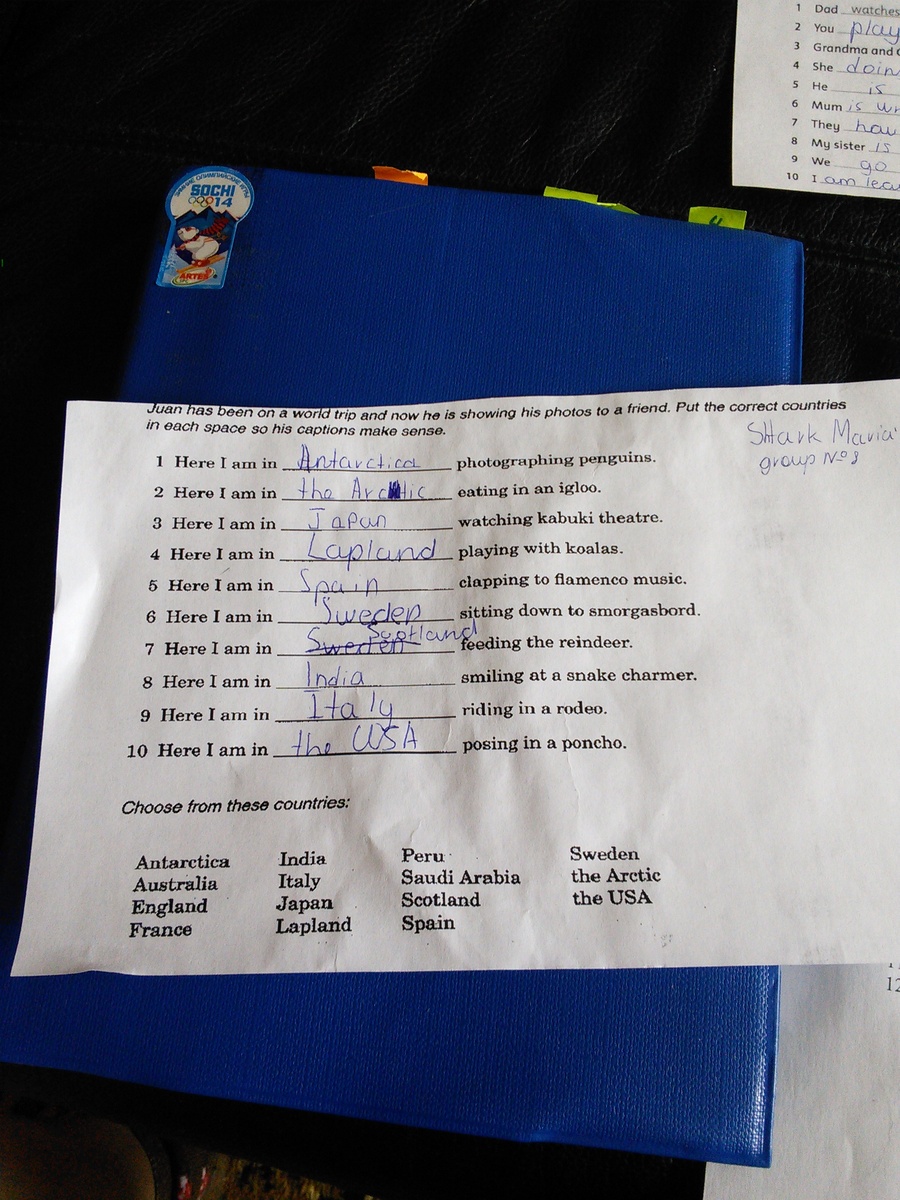 1 Dad watches
2 You play
3 Grandma and
4 She doin
5 He is
6 Mum is
7 They hav
8 My sister is
9 We go
10 I am lea
ЗИМНИЕ ОЛИМПИЙСКИЕ ИГРЫ
SOCHI
2014
ARTES
4
Juan has been on a world trip and now he is showing his photos to a friend. Put the correct countries
in each space so his captions make sense.
Shtark Maria
group №8
1 Here I am in Antarctica photographing penguins.
2 Here I am in the Arctic eating in an igloo.
3 Here I am in Japan watching kabuki theatre.
4 Here I am in Lapland playing with koalas.
5 Here I am in Spain clapping to flamenco music.
6 Here I am in Sweden sitting down to smorgasbord.
7 Here I am in Sweden Scotland feeding the reindeer.
8 Here I am in India smiling at a snake charmer.
9 Here I am in Italy riding in a rodeo.
10 Here I am in the USA posing in a poncho.
Choose from these countries:
Antarctica India Peru Sweden
Australia Italy Saudi Arabia the Arctic
England Japan Scotland the USA
France Lapland Spain
12